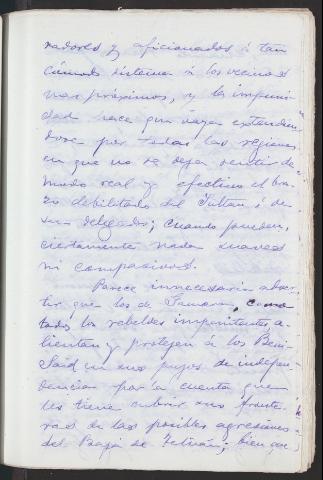 radores y aficionados á tan
cómodo sistema á los vecinos
mas próximos, y la impuni-
dad hace que vaya extendien
dose por todas las regiones
en que no se deja sentir de
modo real y efectivo el bra-
zo debilitado del Sultan ó de
sus delegados; cuando pueden,
ciertamente nada suaves
ni compasivos.
Parece innecesario adver-
tir que los de Samar, como
todos los rebeldes impenitentes a-
lientan y protejen á los Beni-
Said en sus pujos de indepen-
dencia por la cuenta que
les tiene cubrir sus fronte-
ras de las posibles agresiones
del Bajá de Tetuán; bien que